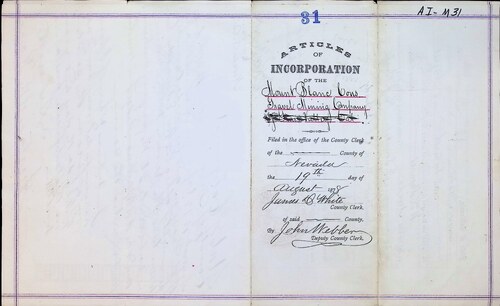 31
AI-M31
ARTICLES
OF
INCORPORATION
OF THE
Mount Blanc Cons
Gravel Mining Company
Filed in the office of the County Clerk
of the County of
Nevada
the 19th day of
August 1878
James D White
County Clerk.
of said County.
By John Webber
Deputy County Clerk.